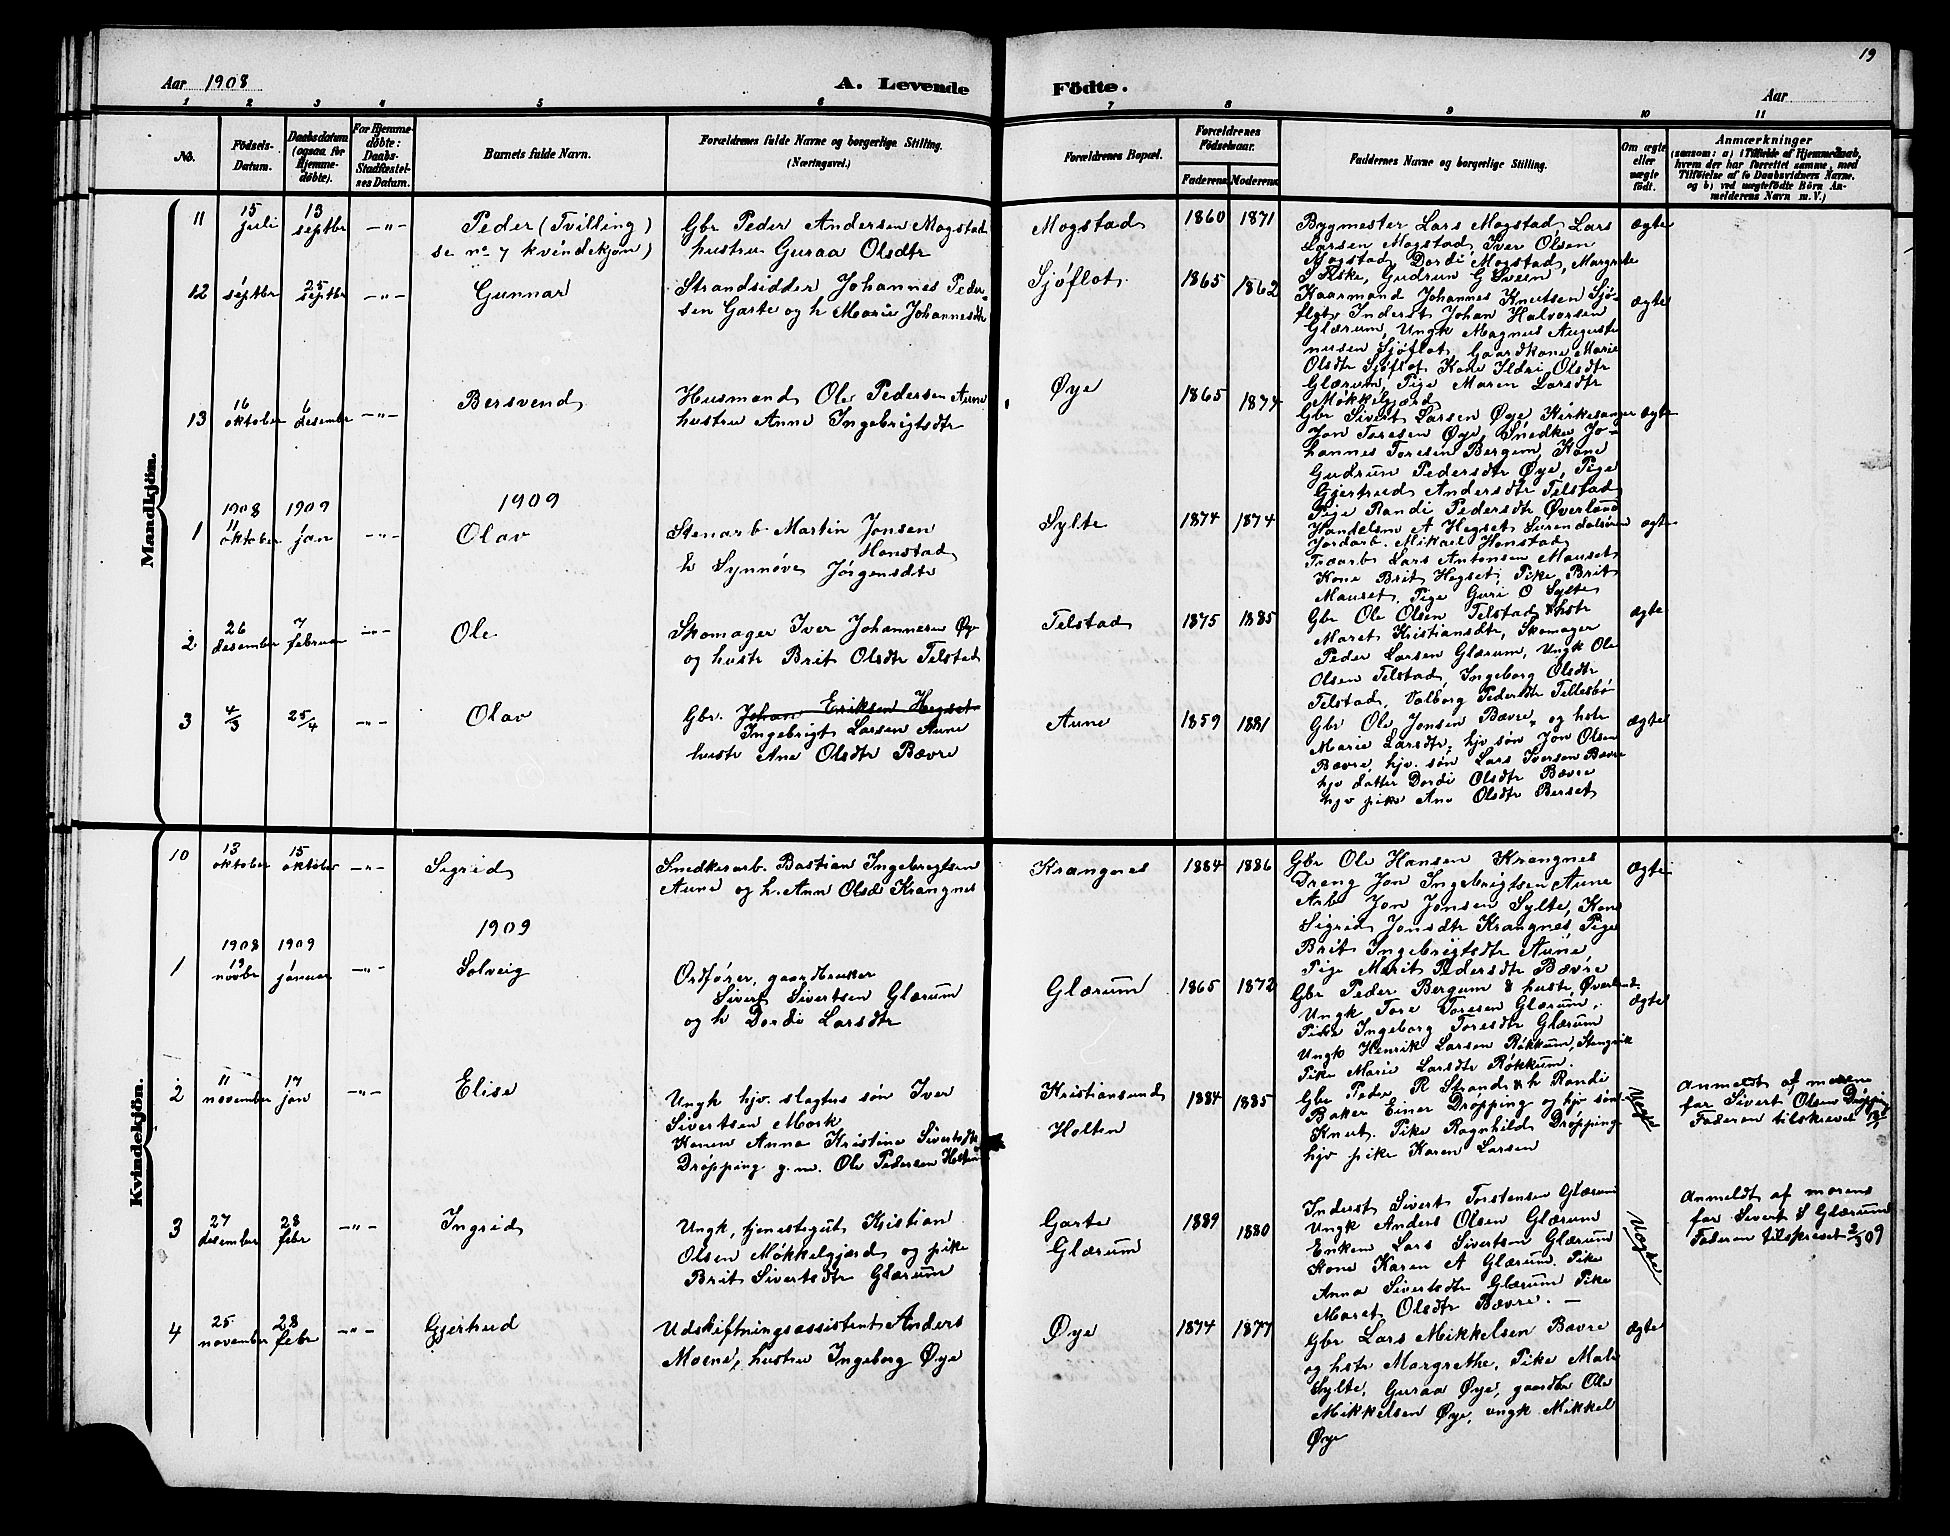 19
Aar 1908
A. Levende Födte.
Aar
1 2 3 4 5 6 7 8 9 10 11
No.
Födsels-Datum.
Daabsdatum (ogsaa for Hjemme-døbte).
For Hjemme-døbte: Daabs-Stadfæstel-ses Datum.
Barnets fulde Navn.
Forældrenes fulde Navne og borgerlige Stilling.
(Næringsvei.)
Forældrenes Bopæl.
Forældrenes Födselsaar.
Faderens. Moderens.
Faddernes Navne og borgerlige Stilling.
Om ægte eller uægte födt.
Anmærkninger
(saasom: a) i Tilfælde af Hjemmedaab,
hvem der har forrettet samme, med
Tilföielse af to Daabsvidners Navne,
og b) ved uægtefödte Börn An-
melderens Navn m. V.)
Mandkjön.
11
15 juli
13 septbr
—"—
Peder (Tvilling)
se no 7 kvindekjøn)
Gbr Peder Andersen Mogstad
hustru Guraa Olsdtr
Mogstad
1860 1871
Bygmester Lars Mogstad Lars
Larsen Mogstad, Iver Olsen
Mogstad, Dordi Mogstad, Margrete
Aske, Gudrun G Sveen,
ægte
12
septbr
25 septbr
—"—
Gunnar
Strandsidder Johannes Peder-
sen Garte og h Marie Johannesdtr
Sjøflot
1865 1862
Kaarmand Johannes Knutsen Sjø-
flot, Inderst Johan Halvorsen
Glærum, Ungk Magnus Auguste
nusen Sjøflot, Gaardkone Marie
Olsdtr Sjøflot Kone Ildri Olsdtr
Glærum, Pige Maren Larsdtr
Møkkelgjærd
ægte
13
16 oktober
6 desembr
—"—
Bersvend
Husmand Ole Pedersen Aune
hustru Anne Ingebrigtsdtr
Øye
1865 1874
Gbr Sivert Larsen Øye Kirkesanger
Jon Toresen Øye, Snedker Jo-
hannes Toresen Bergem, Kone
Gudrun Pedersdtr Øye, Pige
Gjertrud Andersdtr Telstad
Pige Randi Pedersdtr Øverland
ægte
1909
1
1908 11 oktober
1909 jan
—"—
Olav
Stenarb. Martin Jonsen
Honstad
h Synnøve Jørgensdtr
Sylte
1874 1874
Handelsm A Hegset Surendalsøren
Jordarb. Mikael Honstad
Træarb Lars Antonsen Mauset
Kone Brit Hegset, Pike Brit
Mauset, Pige Guri O Sylte
ægte
2
26 desember
7 februar
—"—
Ole
Skomager Iver Johannesen Øye
og hustr Brit Olsdtr Telstad
Telstad
1875 1885
Gbr Ole Olsen Telstad & hstr
Maret Kristiansdtr, Skomager
Peder Larsen Glærum, Ungk Ole
Olsen Telstad, Ingeborg Olsdtr
Telstad, Valborg Pedersdtr Tellesbø
ægte
3
4/3
25/4
—"—
Olav
Gbr. Johan Eriksen Hegset
Ingebrigt Larsen Aune
hustr Ane Olsdtr Bævre
Aune
1859 1881
Gbr Ole Jonsen Bævre, og hstr
Marie Larsdtr, hjv søn Jon Olsen
Bævre, hjv. søn Lars Iversen Bævre
hjv datter Dordi Olsdtr Bævre
hjv pike Ane Olsdtr Berset
ægte
Kvindekjön.
10
13 oktober
15 oktober
—"—
Sigrid
Snedkerarb. Bastian Ingebrigtsen
Aune og h. Ann Olsd Krangnes
Krangnes
1884 1886
Gbr Ole Hansen Krangnes
Dreng Jon Ingebrigtsen Aune
Arb Jon Jonsen Sylte, Kone
Sigrid Jonsdtr Krangnes, Pige
Brit Ingebrigtsdtr Aune
Pige Marit Pedersdtr Bævre
ægte
1909
1
1908 19 novbr
1909 januar
—"—
Solveig
Ordfører, gaardbruker
Sivert Sivertsen Glærum
og h Dordi Larsdtr
Glærum
1865 1872
Gbr Peder Bergum & hustr, Øverland
Ungk Tore Toresen Glærum,
Pike Ingeborg Toresdtr Glærum
Ungk Henrik Larsen Røkkum, Stangvik
Pike Marie Larsdtr Røkkum.
ægte
2
11 november
17 jan
—"—
Elise
Ungk hjv. slagters søn Iver
Sivertsen Mork
Konen Anna Kristine Sivertsdtr
Drøpping g. m. Ole Pedersen Holten
Kristiansund
Holten
1884 1885
Gbr Peder R Strand & h Randi
Baker Einer Drøpping og hjv søn
Knut. Pike Ragnhild Drøpping
hjv pike Karen Larsen
Uegte
Anmeldt af morens
far Sivert Olsen Drøpping
Faderen tilskrevet
3
27 desember
28 febr
—"—
Ingrid
Ungk, tjenestegut Kristian
Olsen Møkkelgjærd og pike
Brit Sivertsdtr Glærum
Garte
Glærum
1889 1880
Inderst Sivert Torstensen Glærum
Ungk Anders Olsen Glærum
Enkem Lars Sivertsen Glærum
Kone Karen A Glærum. Pike
Anna Sivertsdtr Glærum Pike
Maret Olsdtr Bævre. —
Uegte
Anmeldt af morens
far Sivert S Glærum
Faderen tilskrevet 2/3 09
4
25 november
28 febr
—"—
Gjertrud
Udskiftningsassistent Anders
Moene, hustru Ingeborg Øye
Øye
1874 1877
Gbr Lars Mikkelsen Bævre
og hstr Margrethe, Pike Mali
Sylte, Guraa Øye, gaardbr Ole
Mikkelsen Øye, ungk Mikkel
Øye
ægte